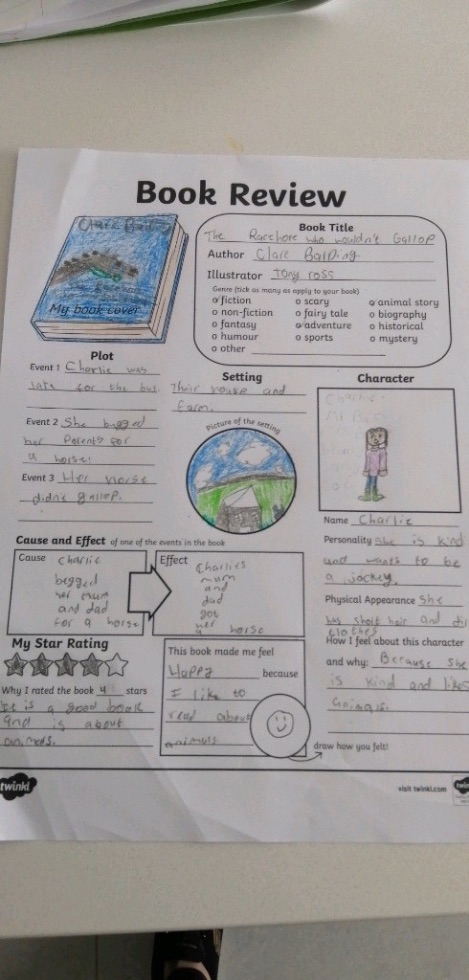 Book Review
Clare Balding
My book cover
Book Title
The Racehore who wouldn't Gallop
Author Clare BalDing.
Illustrator tony ross
Genre (tick as many as apply to your book)
o fiction
o non-fiction
o fantasy
o humour
o other
o scary
o fairy tale
o adventure
o sports
o animal story
o biography
o historical
o mystery
Plot
Event 1 Charlie was
late for the bus.
Event 2 She begged
her Parents for
a horse!
Event 3 Her horse
didn't gallop.
Setting
Their house and
farm.
Picture of the setting
Character
Charlie
Name Charlie
Personality She is kind
and wants to be
a jockey.
Physical Appearance She
has short hair and
clothes
How I feel about this character
and why: Because she
is kind and likes
Cause and Effect of one of the events in the book
Cause Charlie
begged
her mum
and dad
for a horse
Effect Charlies
mum
and
dad
got
her
a horse
My Star Rating
Why I rated the book 4 stars
It is a good book
and is about
This book made me feel
Happy because
I like to
read about
animals
draw how you felt!
twinkl
visit twinkl.com